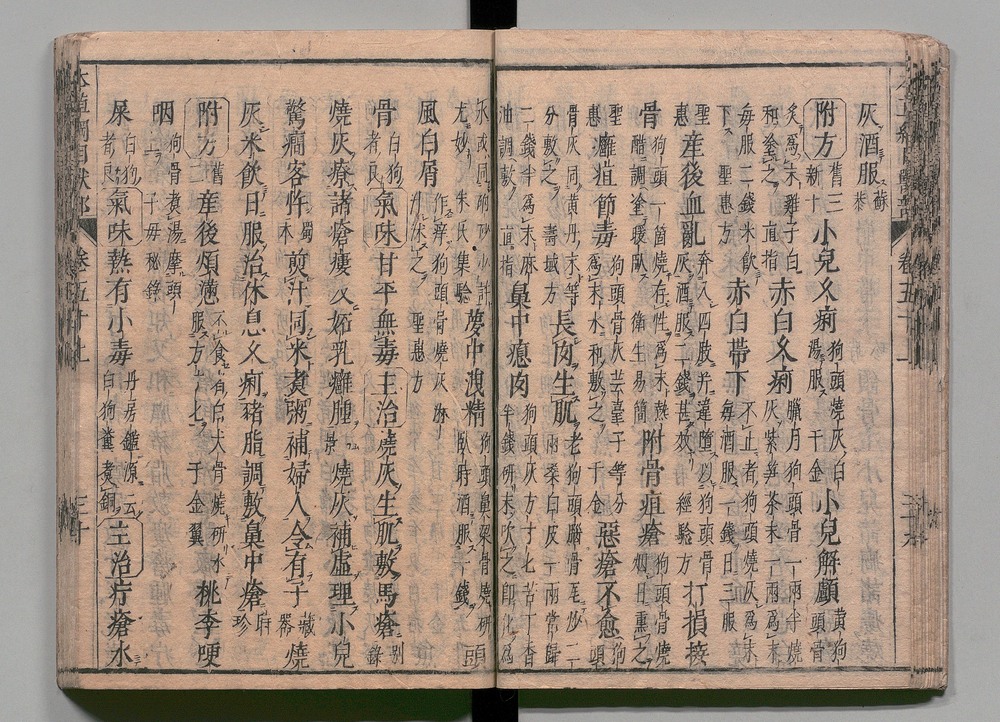 灰酒服 蘇恭
附方 舊三 新十 小兒久痢 狗頭燒灰白湯服 千金 小兒解顱 黄狗頭骨
炙爲末雞子白和塗之 直指 赤白久痢 臘月狗頭骨一兩半燒灰紫笋茶末一兩爲末
每服二錢米飲下 聖惠方 赤白帶下 不止者狗頭燒灰爲末每酒服一錢日三服
聖惠 産後血亂 奔入四肢并違墮以狗頭骨灰酒服二錢甚效 經驗方 打損接
骨 狗頭一箇燒存性爲末熱醋調塗暖臥 衛生易簡 附骨疽瘡 狗頭骨燒烟日熏之
聖惠 癰疽節毒 狗頭骨灰芸薹子等分爲末水和敷之 千金 惡瘡不愈 狗頭
骨灰同黄丹末等分敷之 壽域方 長肉生肌 老狗頭腦骨瓦炒二兩桑白皮一兩當歸
二錢半爲末麻油調敷 直指 鼻中瘜肉 狗頭灰方寸匕苦丁香半錢研末吹之即化爲
水或同硇砂少許尤妙 朱氏集驗 夢中洩精 狗頭鼻梁骨燒研臥時酒服一錢 頭
風白屑 作痒狗頭骨燒灰淋汁沐之 聖惠方
骨 白狗者良 氣味 甘平無毒 主治 燒灰生肌敷馬瘡 别錄
燒灰療諸瘡瘻及妬乳癰腫 燒灰補虛理小兒
驚癇客忤 蜀本 煎汁同米煮粥補婦人令有子 藏器 燒
灰米飲日服治休息久痢豬脂調敷鼻中瘡 時珍
附方 舊二 産後煩懣 不食白犬骨燒研水服方寸匕 千金翼 桃李哽
咽 狗骨煮湯摩頭上 子母秘錄
屎 白狗者良 氣味 熱有小毒 丹房鑑源云白狗糞煮銅 主治 疔瘡水